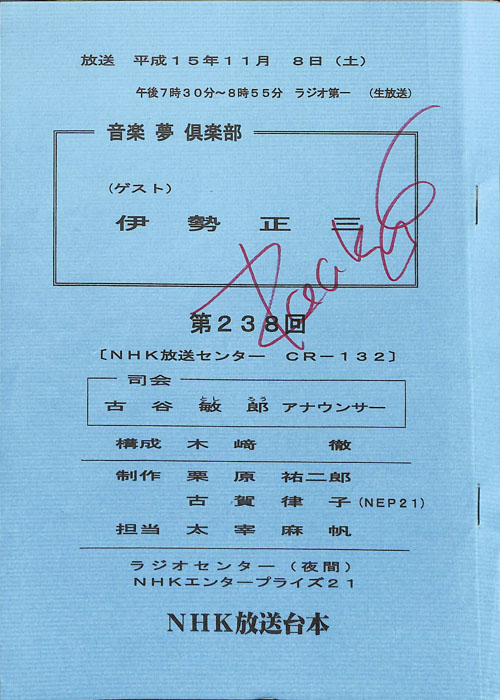 放送 平成15年11月 8日(土)
午後7時30分~8時55分 ラジオ第一 (生放送)
音楽 夢 倶楽部
(ゲスト)
伊勢正三
第238回
〔NHK放送センター CR-132〕
司会
古谷敏郎 アナウンサー
としろう
構成 木﨑 徹
制作 栗原 祐二郎
古賀 律子(NEP21)
担当 太宰麻帆
ラジオセンター(夜間)
NHKエンタープライズ21
NHK放送台本